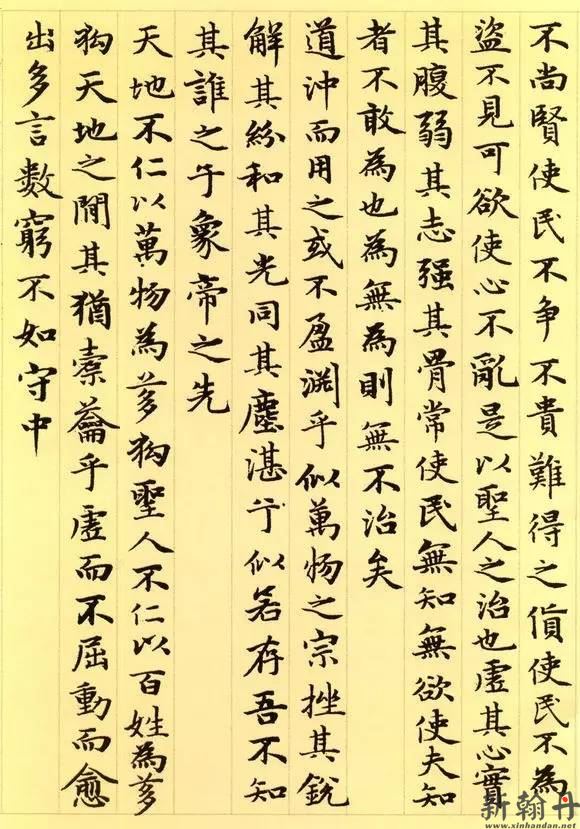 不尚賢使民不争不貴難得之貨使民不為
盜不見可欲使心不亂是以聖人之治也虛其心實
其腹弱其志强其骨常使民無知無欲使夫知
者不敢為也為無為則無不治矣
道沖而用之或不盈淵乎似萬物之宗挫其銳
解其紛和其光同其塵湛兮似若存吾不知
其誰之子象帝之先
天地不仁以萬物為芻狗聖人不仁以百姓為芻
狗天地之閒其猶橐籥乎虛而不屈動而愈
出多言數窮不如守中
新翰丹
www.xinhandan.net